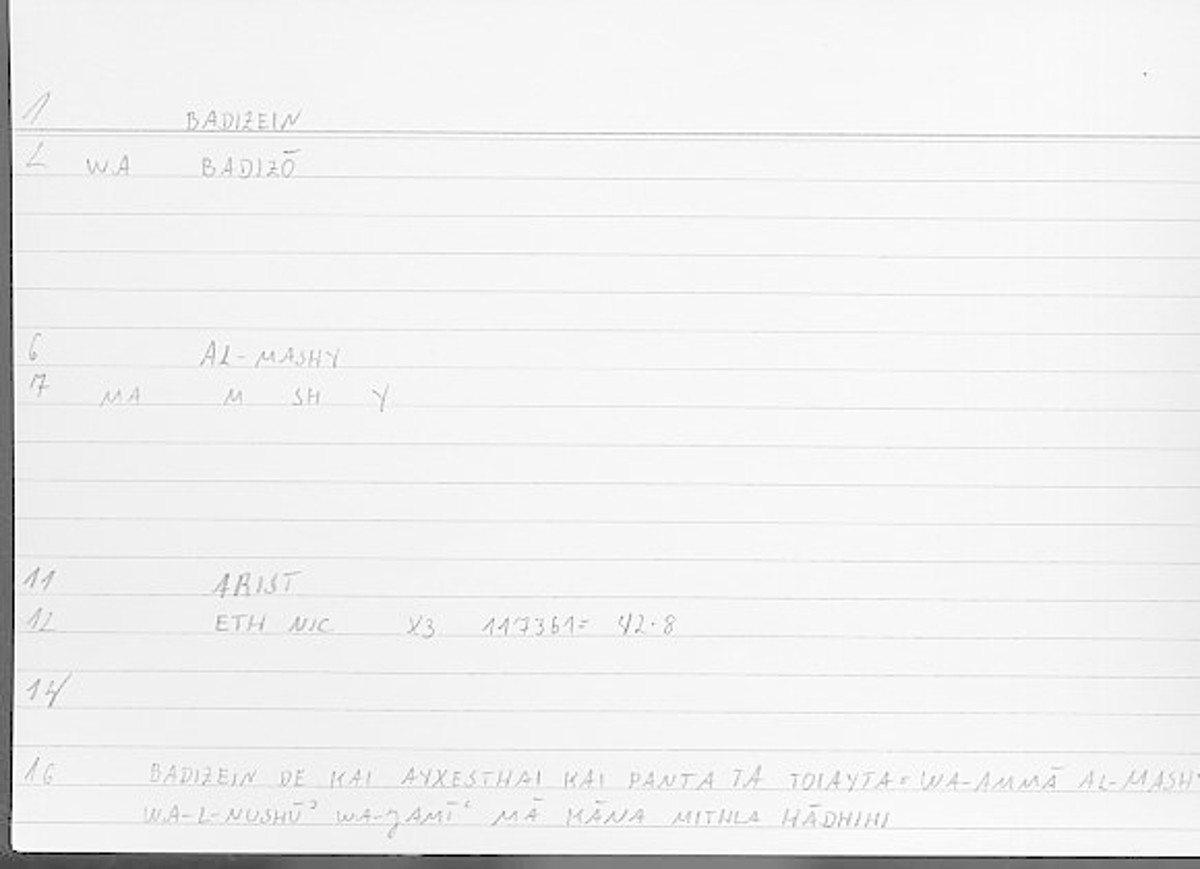 1 BADIZEIN
2 WA BADIZŌ
6 AL-MASHY
7 MA M SH Y
11 ARIST
12 ETH NIC X3 1173b1= 42.8
14
16 BADIZEIN DE KAI AYXESTHAI KAI PANTA TA TOIAYTA= WA-AMMĀ AL-MASHY
WA-L-NUSHŪʾ WA-JAMĪʿ MĀ KĀNA MITHLA HĀDHIHI